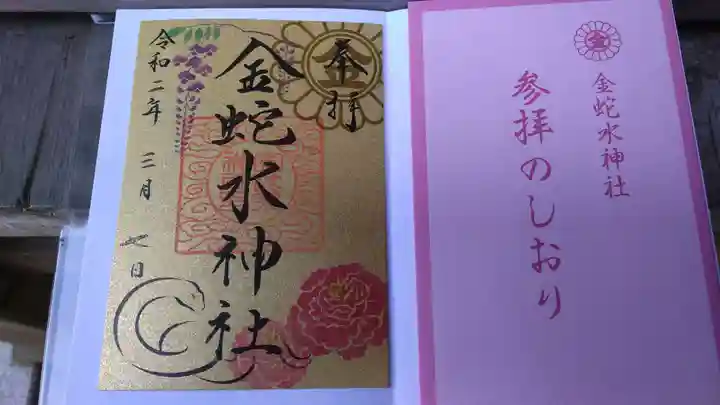 奉拝
金蛇水神社
令和二年 三月 七日
金
金蛇水神社
参拝のしおり